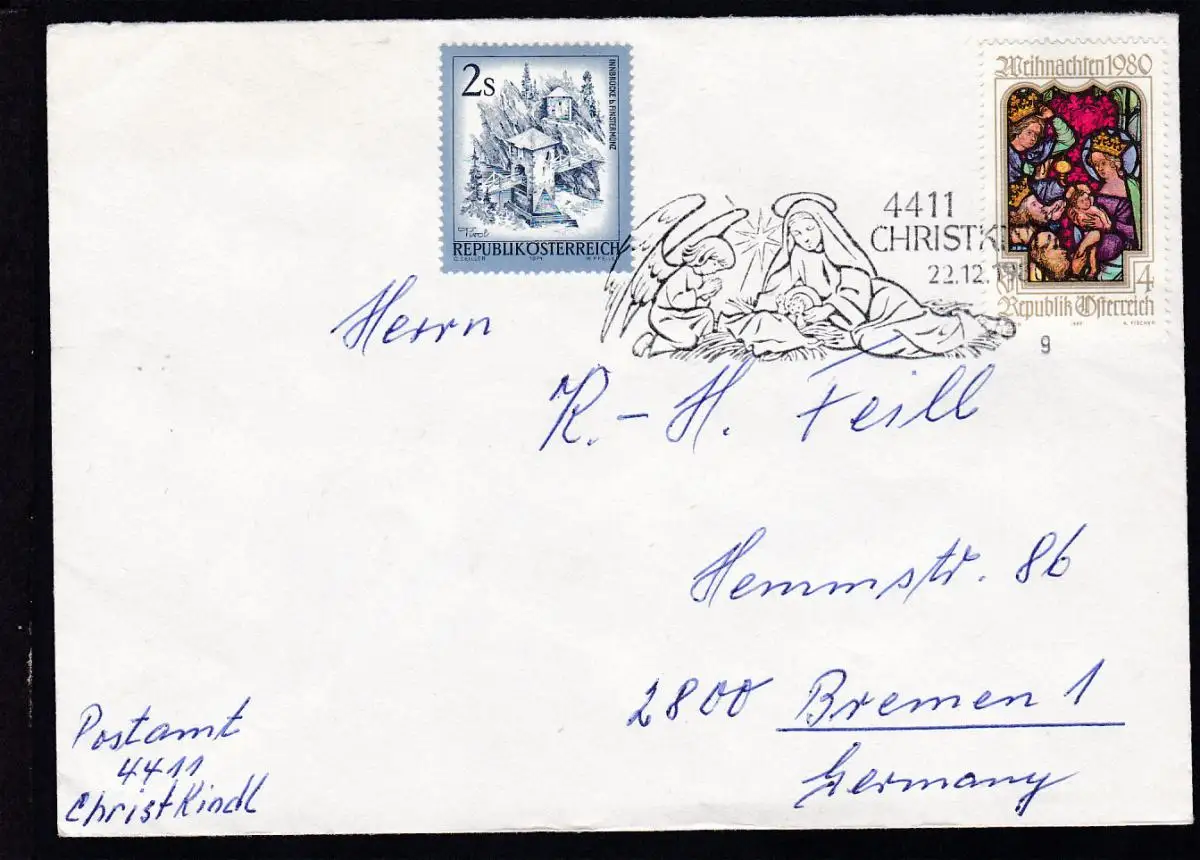 2s
INNBRÜCKE b. FINSTERMÜNZ
Tirol
REPUBLIK ÖSTERREICH
1974
Weihnachten 1980
4
Republik Österreich
1980
A. FISCHER
4411
CHRISTKI
22.12.19
g
Herrn
K.-H. Feill
Hemmstr. 86
2800 Bremen 1
Germany
Postamt
4411
Christkindl